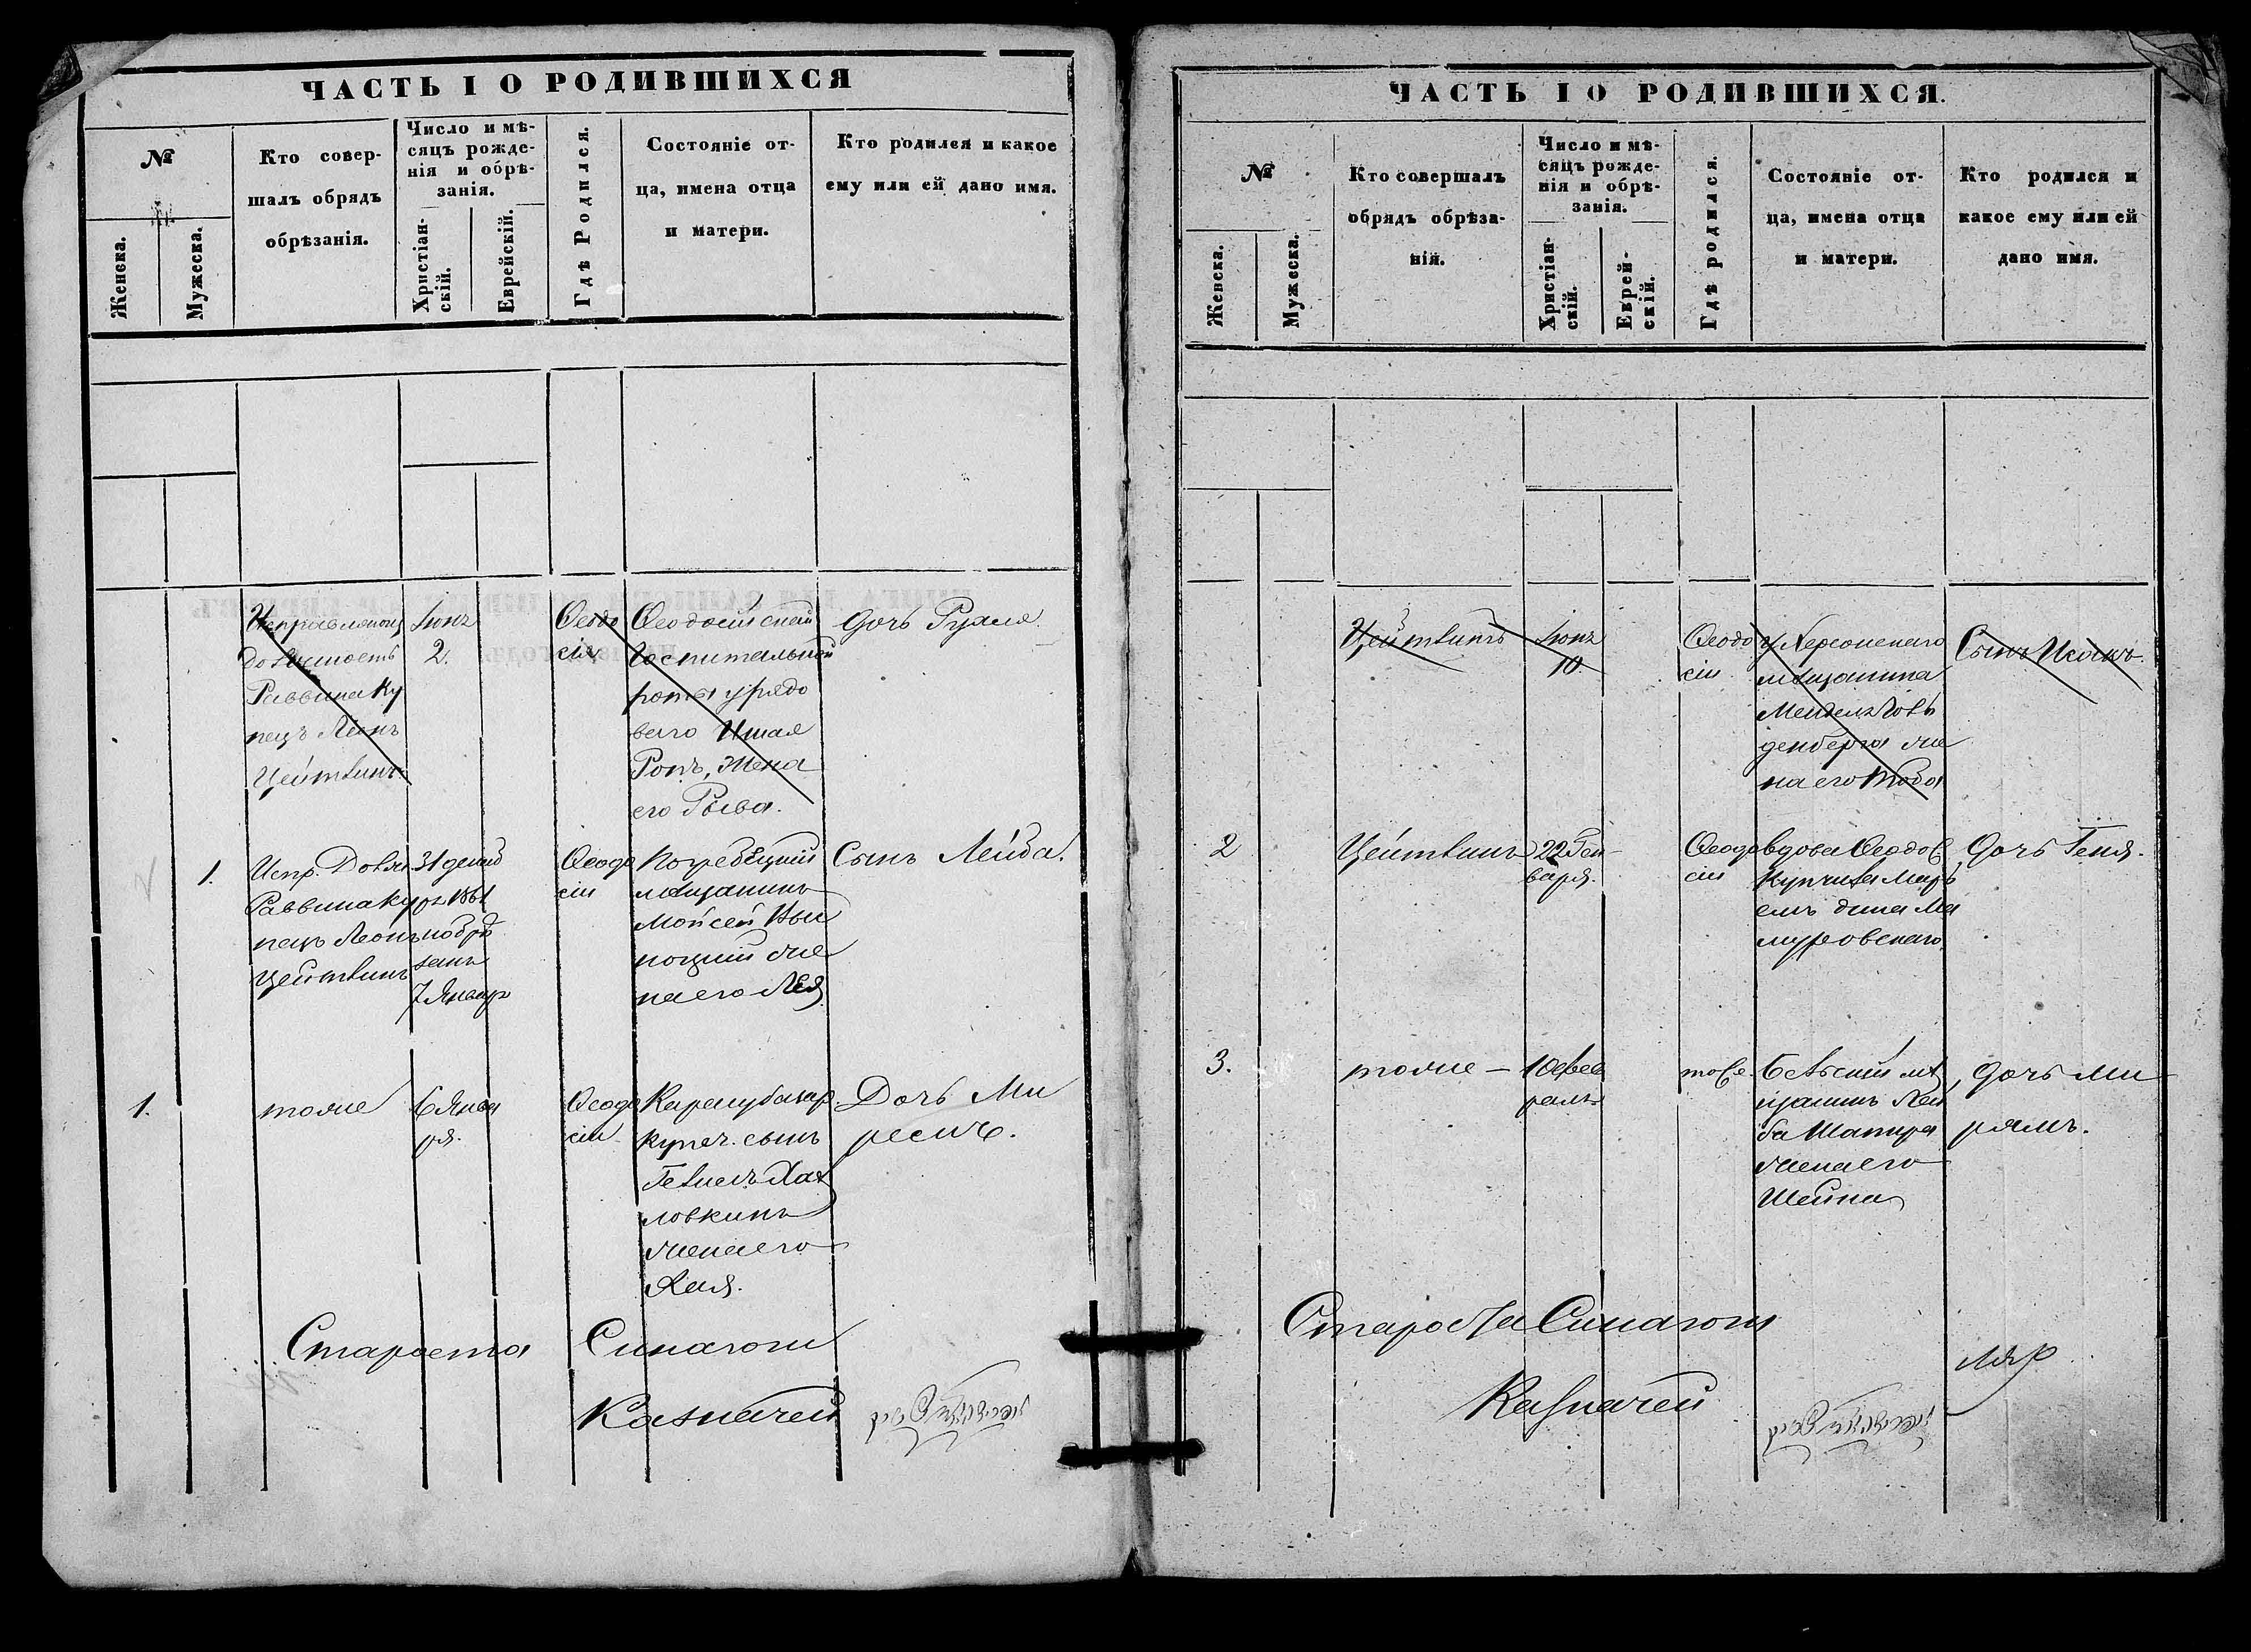 ЧАСТЬ I О РОДИВШИХСЯ
№
Женска.
Мужеска.
Кто совер-
шалъ обрядъ
обрѣзанія.
Число и мѣ-
сяцъ рожде-
нія и обрѣ-
занія.
Христіан-
скій.
Еврейскій.
Гдѣ Родился.
Состояніе от-
ца, имена отца
и матери.
Кто родился и какое
ему или ей дано имя.
Исправляющ
должность
Раввина Ку
пецъ Леонъ
Цейтлинъ
Іюня
2.
Ѳеодо
сіи
Ѳеодосійской
Госпитальной
роты у рядо
вого
жена
его Рыва.
дочь
1.
Испр. Долж
Раввина Ку
пецъ Леонъ
Цейтлинъ
31 декаб
ря 1861
и обрѣ
занъ
7 Января
Ѳеодо
сіи
мѣщанинъ
Мойсей
же
на его Лея
Сынъ Лейба.
1.
тоже
6 Янва
ря.
Ѳеодо
сіи
Карасубазар
купеч. сынъ
жена его
Хая.
Дочь Ми
Староста Синагоги
Казначей
ЧАСТЬ I О РОДИВШИХСЯ.
№
Женска.
Мужеска.
Кто совершалъ
обрядъ обрѣза-
нія.
Число и мѣ-
сяцъ рожде-
нія и обрѣ-
занія.
Христіан-
скій.
Еврей-
скій.
Гдѣ родился.
Состояніе от-
ца, имена отца
и матери.
Кто родился и
какое ему или ей
дано имя.
Цейтлинъ
Іюня
10.
Ѳеодо
сіи
у Херсонскаго
мѣщанина
Менделя Голь
денберга же
на его
Сынъ Исакъ.
2
Цейтлинъ
22 Ген
варя.
Ѳеодо
сіи
вдова Ѳеодос
дочь Геня.
3.
тоже
10 Фев
раля
тоже.
мѣ
щанинъ Лей
ба Шапира
жена его
Шейна
дочь Ми
рямъ.
Староста Синагоги
Казначей